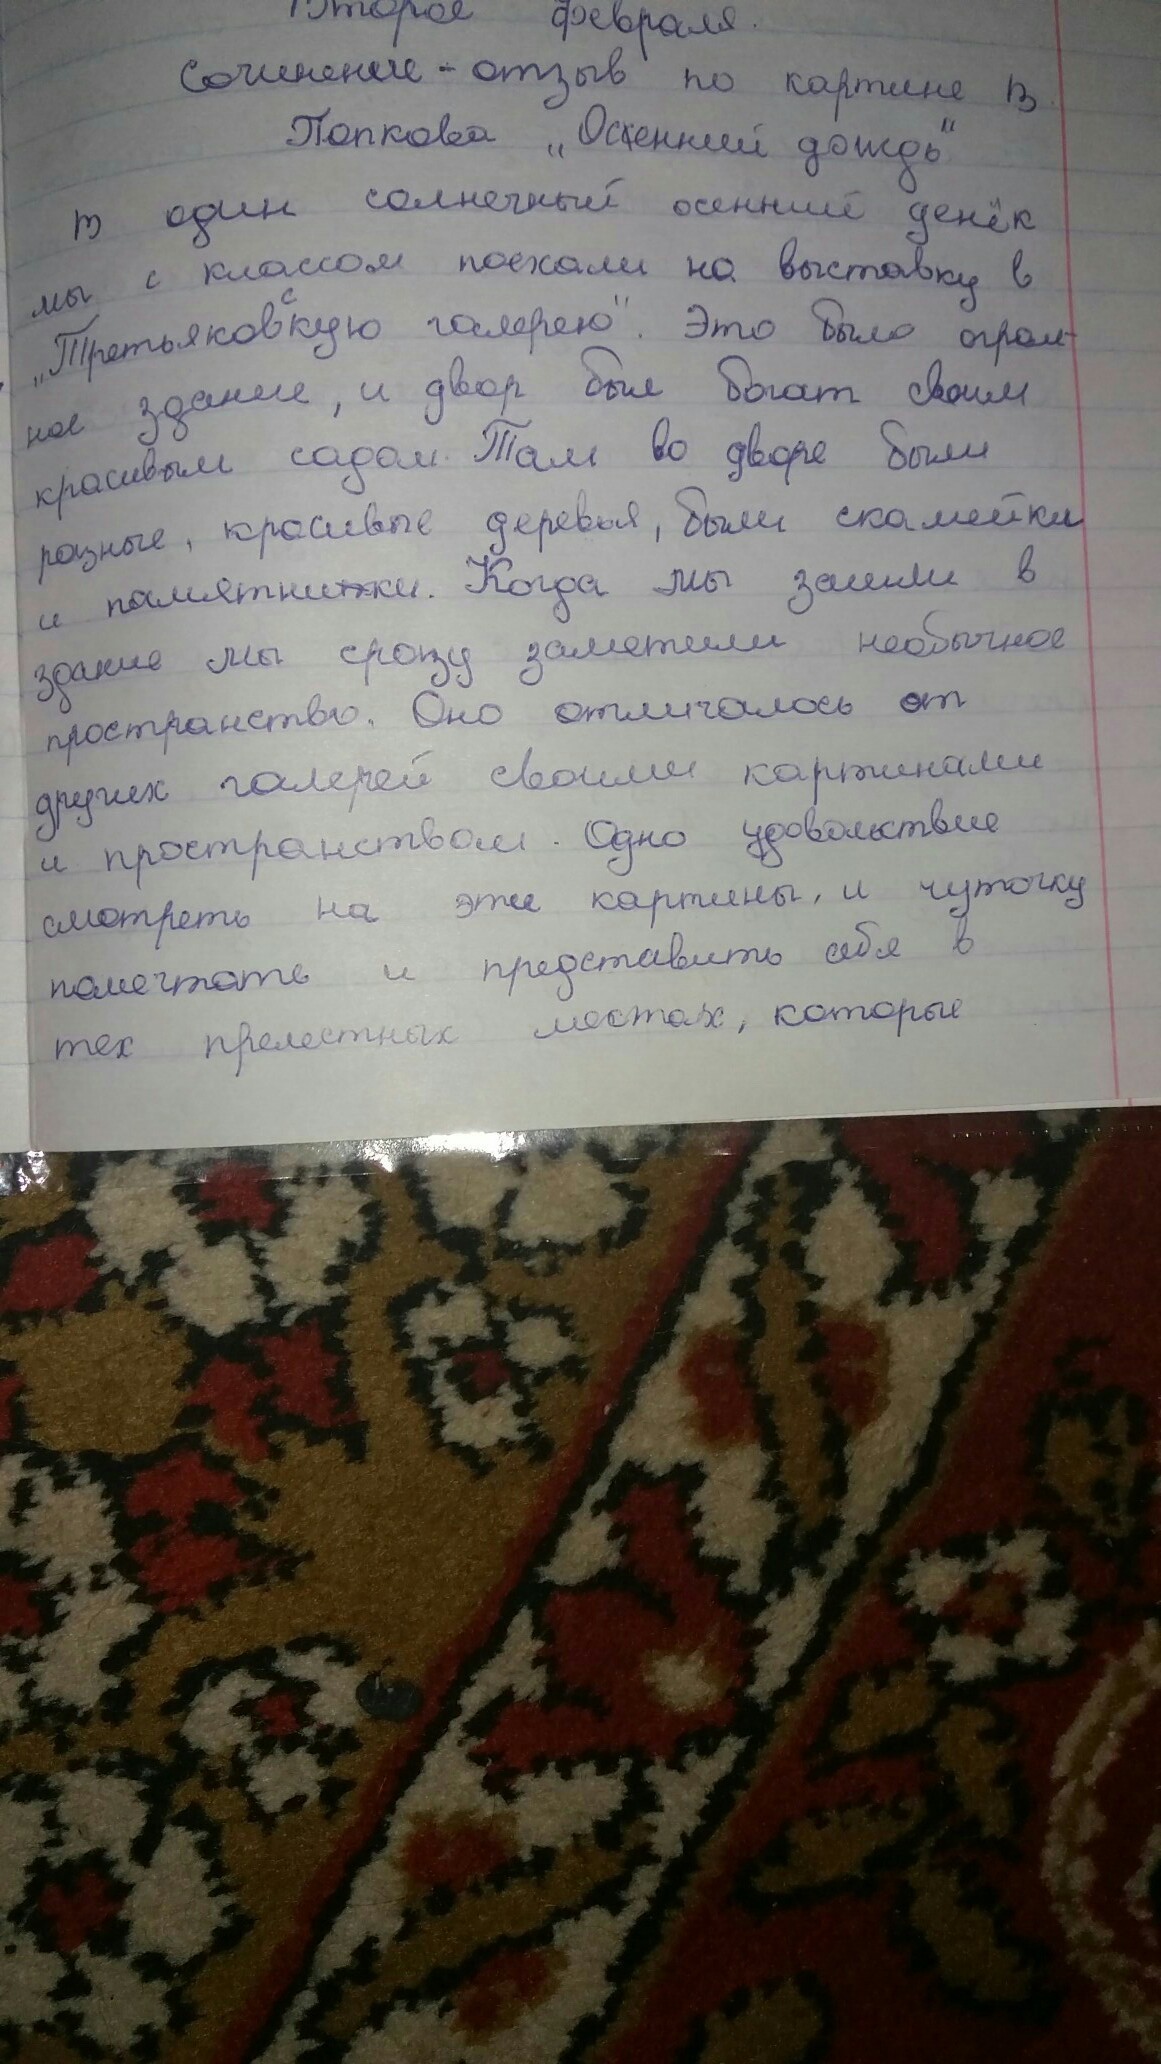 Второе февраля.
Сочинение-отзыв по картине В
Попкова „Осенний дождь"
В один солнечный осенний денёк
мы с классом поехали на выставку в
„Третьяковскую галерею". Это было огром-
ное здание, и двор был богат своим
красивым садом. Там во дворе были
разные, красивые деревья, были скамейки
и памятники. Когда мы зашли в
здание мы сразу заметили необычное
пространство. Оно отличалось от
других галерей своими картинами
и пространством. Одно удовольствие
смотреть на эти картины, и чуточку
помечтать и представить себя в
тех прелестных местах, которые